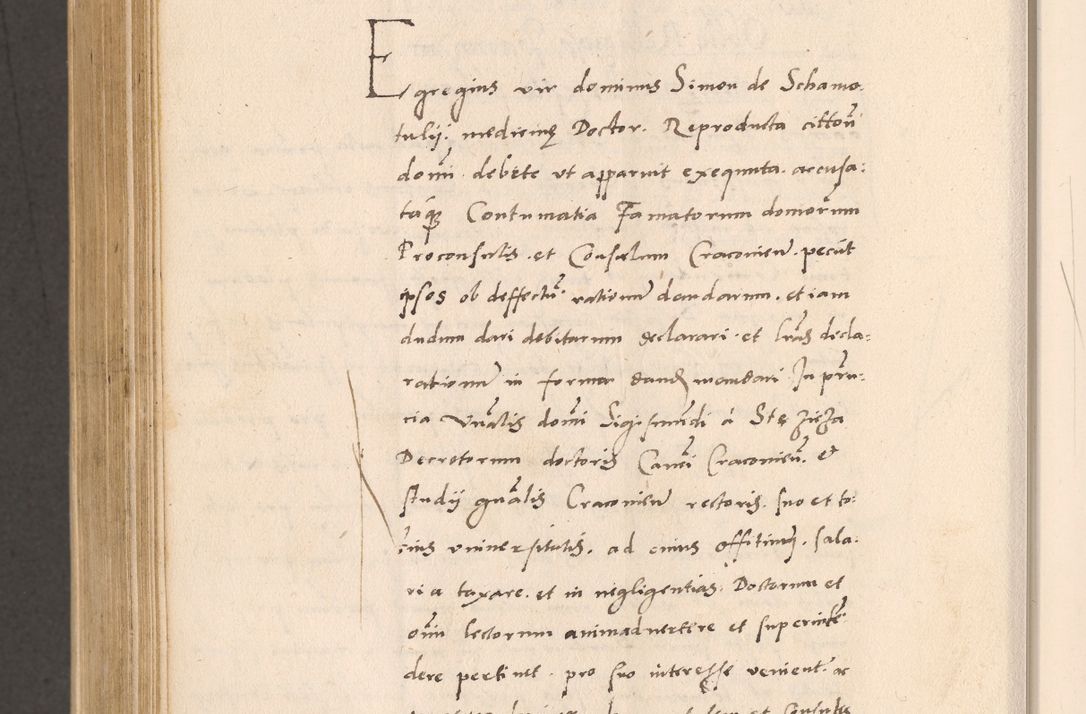 Egregius vir dominus Simon de Schamo.
tulij, medicinę Doctor. Reproducta cittõñ
domĩ. debite ut apparuit exequuta. accusa:
taq́ꝫ Contumatia Famatorum domorum
Proconsulis. et Consulum Cracovien̄. pecũt
ipsos ob deffectũ. rationum̄ dandarum. et iam
dudum dari debitarum declarari. et l̃ras decla:
rationum̄ in forma eand. mandari. In p̃ñ:
cia Vn̄alis domĩ Sigismũdi à Stęzicza
Decretorum doctoris Canci Cracovien̄. et
studij gn̄alis Cracovien̄ rectoris. suo et to:
tius universitatis. ad cuius offitium. sala:
ria taxare. et in negligentias. Doctorum et
om̄i lectorum animadvertere et superintẽ
dere pertinet. pro suo interesse venient. ac